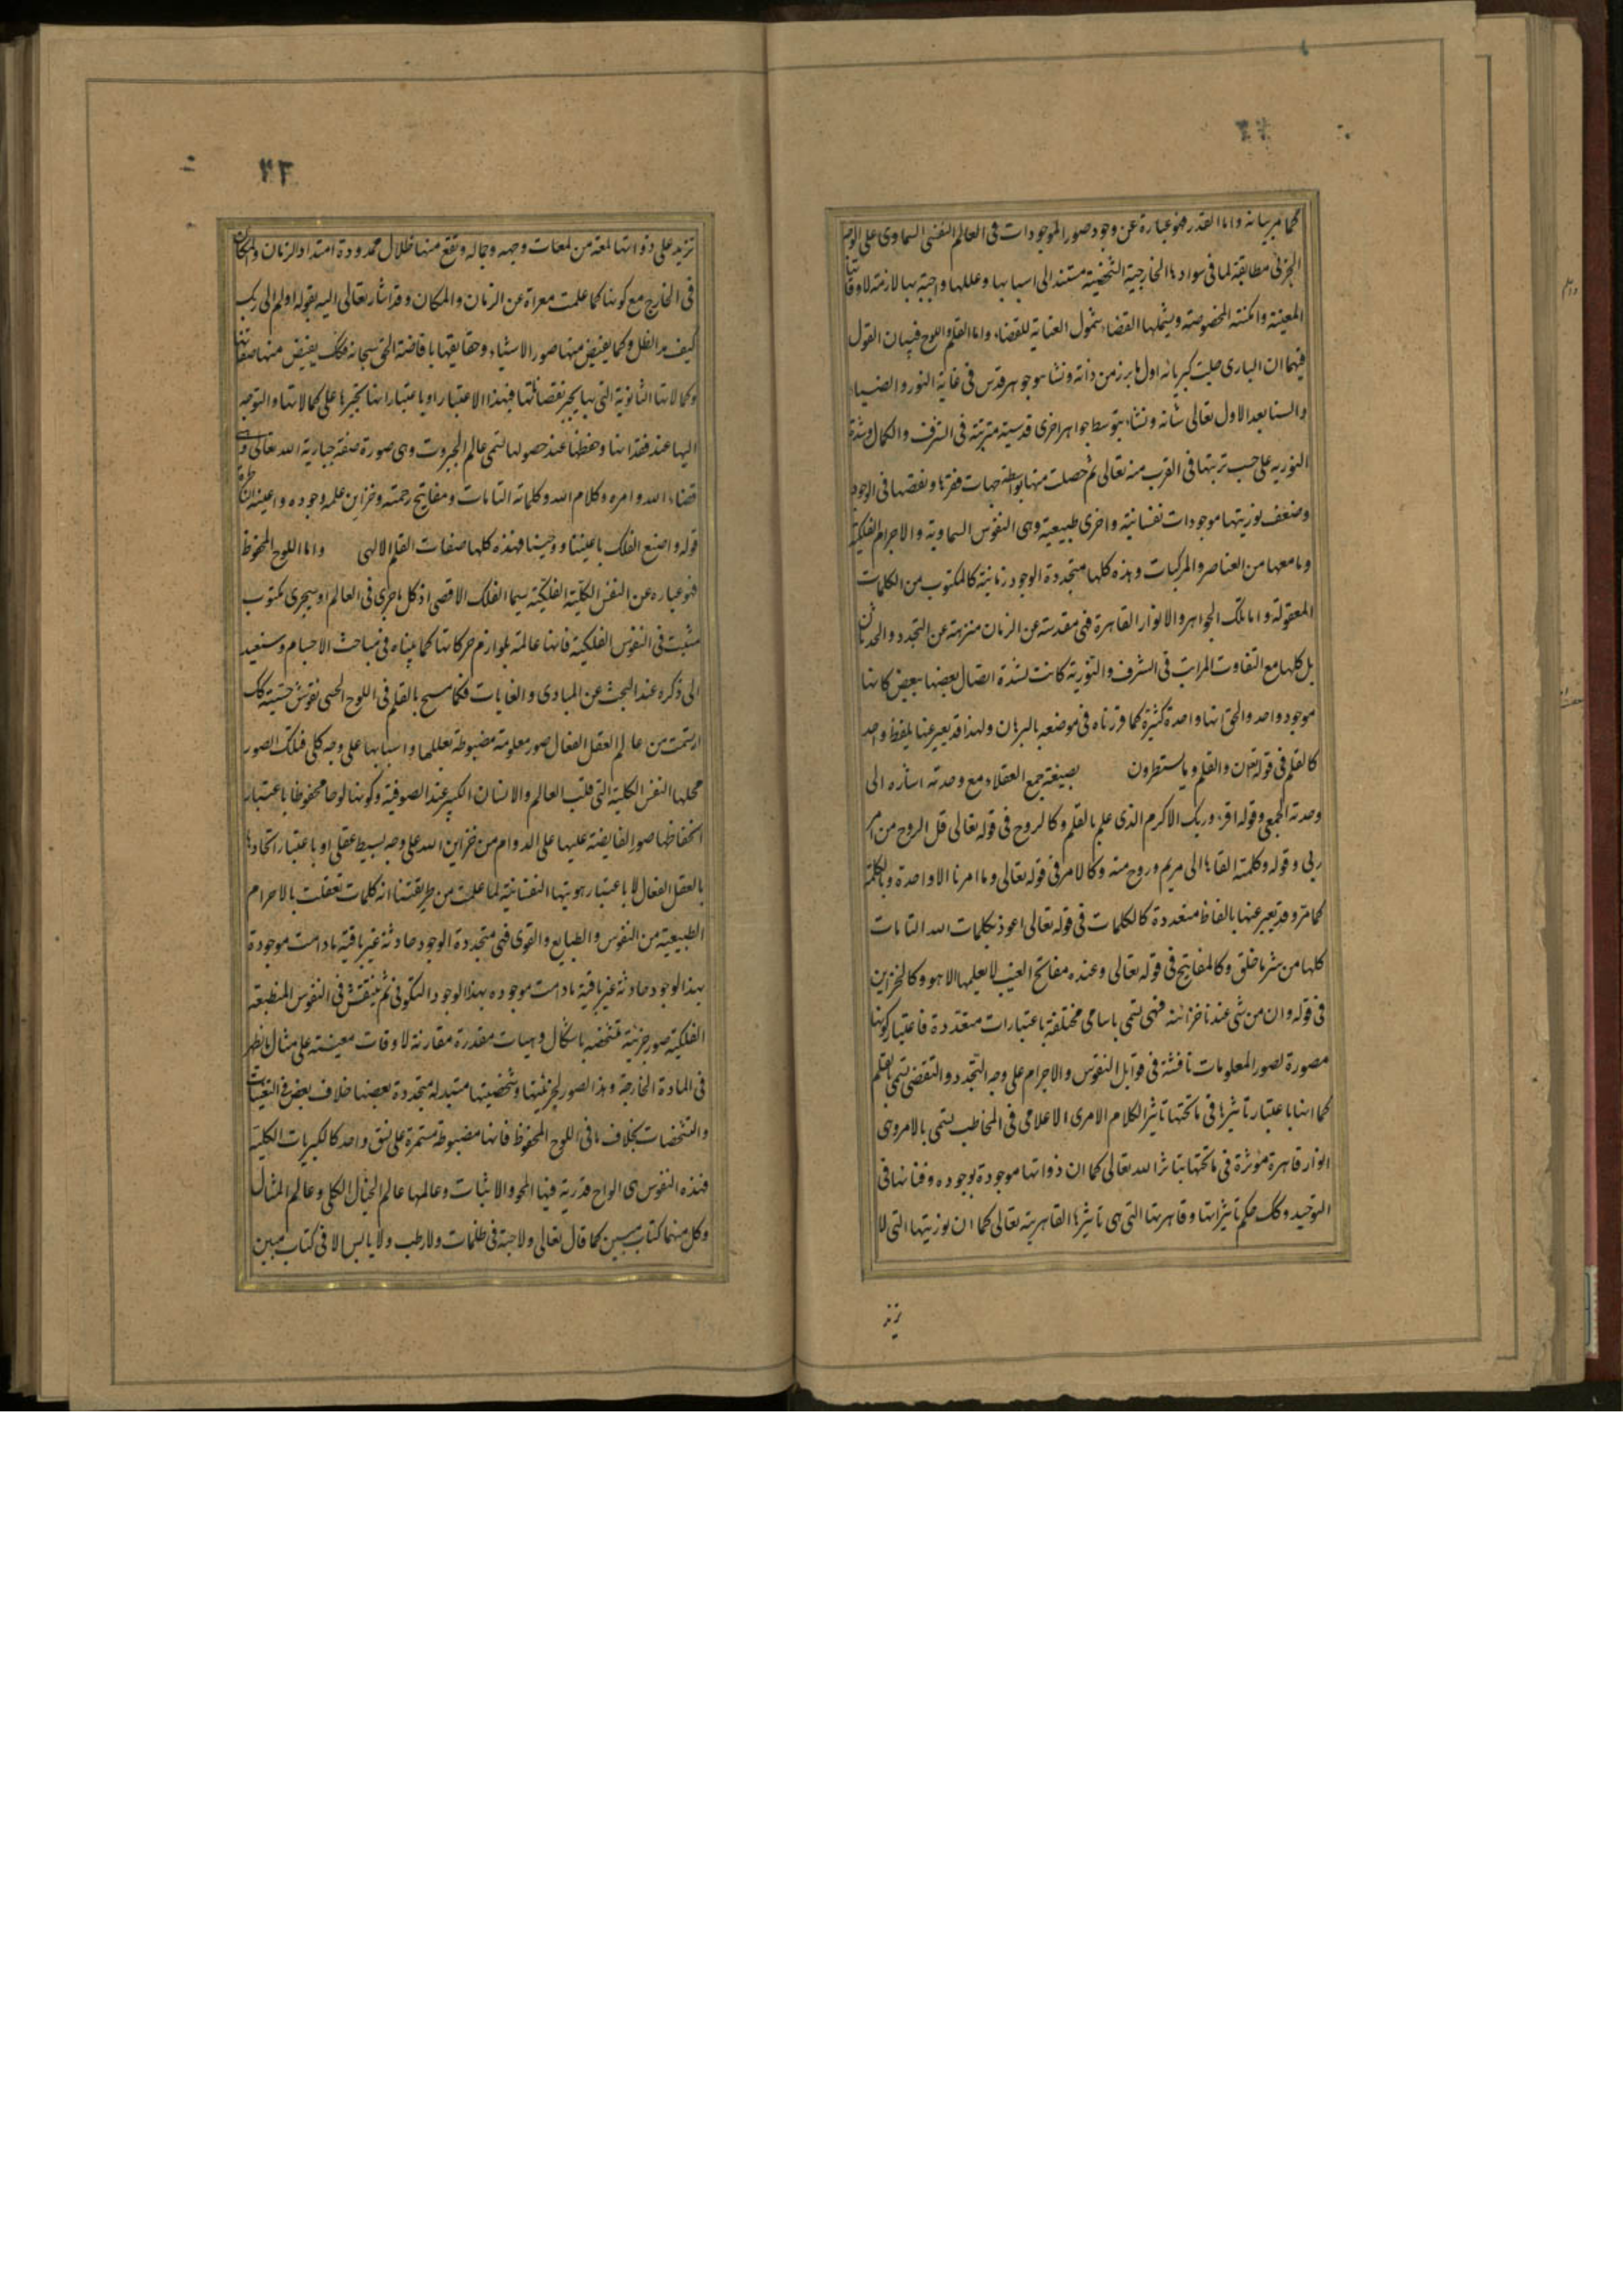 كما مر بيانه واما القدر فهو عبارة عن وجود صور الموجودات فى العالم النفسى السماوى على الوجه
الجزئى مطابقة لما فى موادها الخارجية الشخصية مستند الى اسبابها وعللها واجبة بها لازمة لاوقاتها
المعينة وامكنتها المخصوصة ويشملها القضاء شمول العناية للقضاء واما القلم واللوح فبيان القول
فيهما ان البارى جلت كبريائه اول ما برز من ذاته ونشا هو جوهر قدس فى غاية النور والضياء
والسنا بعد الاول تعالى شانه ونشاء بتوسط جواهر اخرى قدسية مترتبة فى الشرف والكمال وشدة
النورية على حسب ترتبها فى القرب منه تعالى ثم حصلت منها بواسطة جهات فقرها ونقصها فى الوجود
وضعف نوريتها موجودات نفسانية واخرى طبيعية وهى النفوس السماوية والاجرام الفلكية
وما معها من العناصر والمركبات وهذه كلها متجددة الوجود زمانية كالمكتوب من الكلمات
المعقولة واما تلك الجواهر والانوار القاهرة فهى مقدسة عن الزمان منزهة عن التجدد والحدثان
بل كلها مع التفاوت المراتب فى الشرف والنورية كانت لشدة اتصال بعضها ببعض كانها
موجود واحد والحق انها واحدة كثيرة كما قررناه فى موضعه بالبرهان ولهذا قد يعبر عنها بلفظ واحد
كالقلم فى قوله تع ن والقلم وما يسطرون بصيغة جمع العقلاء مع وحدته اشاره الى
وحدته الجمعى وقوله اقرء وربك الاكرم الذى علم بالقلم وكالروح فى قوله تعالى قل الروح من امر
ربى وقوله وكلمته القاها الى مريم وروح منه وكالامر فى قوله تعالى وما امرنا الا واحدة وبالكلمة
كما مر وقد يعبر عنها بالفاظ متعددة كالكلمات فى قوله تعالى اعوذ بكلمات الله التامات
كلها من شر ما خلق وكالمفاتيح فى قوله تعالى وعنده مفاتح الغيب لا يعلمها الا هو وكالخزاين
فى قوله وان من شى عندنا خزائنه فهى تسمى باسامى مختلفة باعتبارات متعددة فاعتبار كونها
مصورة لصور المعلومات ناقشة فى قوابل النفوس والاجرام على وجه التجدد والتقضى تسمى بالقلم
كما انها باعتبار تاثيرها فى ما تحتها تاثير الكلام الامرى الاعلامى فى المخاطب تسمى بالامر وهى
انوار قاهرة مؤثرة فى ما تحتها بتاثر الله تعالى كما ان ذواتها موجودة بوجوده وفنائها فى
التوحيد وكك حكم تاثيراتها وقاهريتها التى هى تاثيرها القاهرية تعالى كما ان نوريتها التى لا
تزيد
۴۳
تزيد على ذواتها لمعة من لمعات وجهه وجماله وتقع منها ظلال ممدودة امتداد الزمان والمكان
فى الخارج مع كونها كما علمت معراة عن الزمان والمكان وقد اشار تعالى اليه بقوله اولم الى ربك
كيف مد الظل وكما يفيض منها صور الاشياء وحقايقها بافاضة الحق سبحانه فكك يفيض منها صفاتها
وكمالاتها الثانوية التى بها يجبر نقصاناتها فبهذا الاعتبار او باعتبار انها تجبرها على كمالاتها والتوجه
اليها عند فقدانها وحفظها عند حصولها تسمى عالم الجبروت وهى صورة صفة جبارية الله تعالى
قضاء الله وامره وكلام الله وكلماته التامات ومفاتيح رحمته وخزاين علمه وجوده واعينه
قوله واصنع الفلك باعيننا ووحينا فهذه كلها صفات القلم الالهى واما اللوح المحفوظ
فهو عباره عن النفس الكلية الفلكية سيما الفلك الاقصى اذ كل ما جرى فى العالم او سيجرى مكتوب
مثبت فى النفوس الفلكية فانها عالمة بلوازم حركاتها كما بيناه فى مباحث الاجسام وسنعيد
الى ذكره عند البحث عن المبادى والغايات فكما ينسخ بالقلم فى اللوح الحسى نقوش حسية كك
ارتسمت من عالم العقل الفعال صور معلومة مضبوطة بعللها واسبابها على وجه كلى فتلك الصور
محلها النفس الكلية التى قلب العالم والانسان الكبير عند الصوفية وكونها لوحا محفوظا باعتبار
انحفاظها صور الفايضة عليها على الدوام من خزاين الله على وجه بسيط عقلى او باعتبار اتحادها
بالعقل الفعال لا باعتبار هويتها النفسانية لما علمت من طريقتنا انه كلمات تعقلت بالاجرام
الطبيعية من النفوس والطبايع والقوى فهى متجددة الوجود حادثة غير باقية ما دامت موجودة
بهذا لوجود حادثة غير باقية ما دامت موجوده بهذا الوجود التكونى ثم ينتقش فى النفوس المنطبعة
الفلكية صور جزئية متشخصه باشكال وهيات مقدرة مقارنة لاوقات معينه على مثال ما يظهر
فى المادة الخارجة وهذا الصور لجزئيتها وشخصيتها متبدله متجددة بعضها خلاف بعض فى التعينات
والتشخصات بخلاف ما فى اللوح المحفوظ فانها مضبوطة مستمرة على نسق واحد كالكبريات الكلية
فهذه النفوس هى الواح قدرية فيها المحو والاثبات وعالمها عالم الخيال الكلى وعالم المثال
وكل منهما كتاب مبين كما قال تعالى ولا حبة فى ظلمات ولا رطب ولا يابس الا فى كتاب مبين